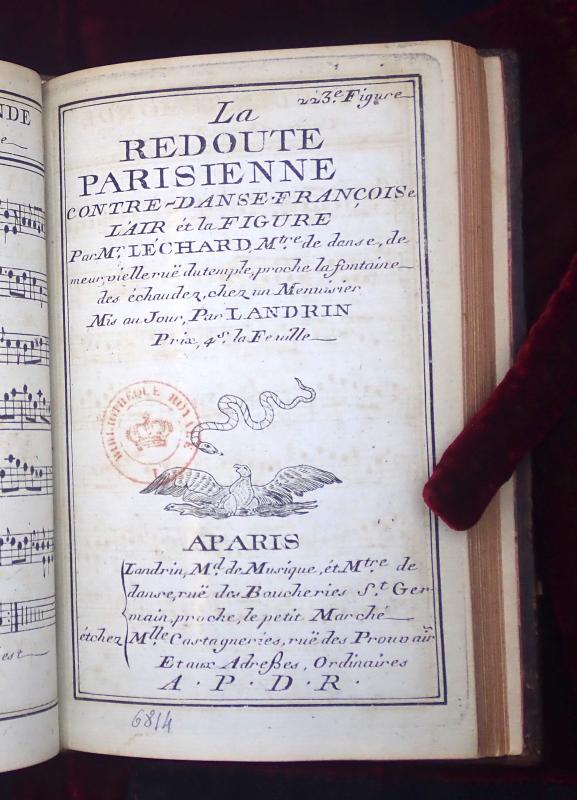 NDE
e
est
223.e Figure
La
REDOUTE
PARISIENNE
CONTRE-DANSE-FRANÇOISe
L'AIR ét la FIGURE
Par Mr. LÉCHARD, Mtre de danse, de
meur, vielle ruë du temple, proche la fontaine
des échaudez, chez un Menuisier
Mis au Jour, Par LANDRIN
Prix, 4s. la Feuille
BIBLIOTHEQUE ROYALE
APARIS
Landrin, Md. de Musique, ét Mtre de
danse, ruë des Boucheries St. Ger-
main, proche, le petit Marché
ét chez Mlle Castagneries, ruë des Prouvair
Et aux Adreßes, Ordinaires
A . P . D . R .
6814